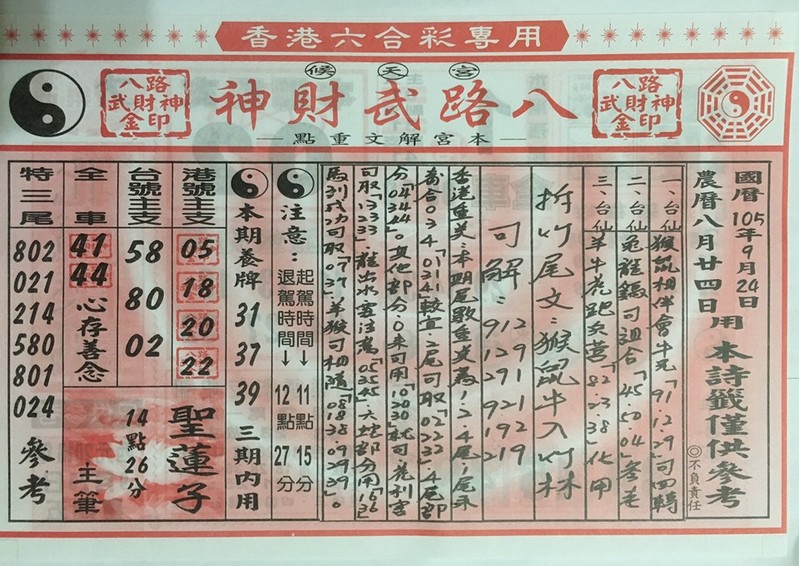 香港六合彩專用
候天宮
八路武財神
本宮解文重點
八路
武財神
金印
八路
武財神
金印
國曆105年9月24日
農曆八月廿四日用
本詩籤僅供參考
◎不負責任
一、台仙猴鼠相伴會牛羊「91.12.29」可四轉
二、台仙兔龍雞可組合「45.50.04」參老
三、台仙羊牛虎跑兵營「82.23.38」化甲
拆竹尾文:猴鼠牛入竹林
可解:912 921
129 192
291 219
香港重美:本期尾數重美為1.2.4尾1尾禾
為合034「0134」較宜.2尾可取「02232」4尾部
分「04344」其他部分.0來可用「1030」就可
可取「13233」龍出水要注意「05.35.45」六蛇部分用「1636」
馬到成功可取「07.37」羊猴可相隨「0818.38.0929.39」。
注意:
起駕時間→11點15分
退駕時間→12點27分
本期養牌
31
37
39
三期內用
港號主支
05
18
20
22
台號主支
58
80
02
聖蓮子
14點26分
主筆
全車
41
44
心存善念
特三尾
802
021
214
580
801
024
參考